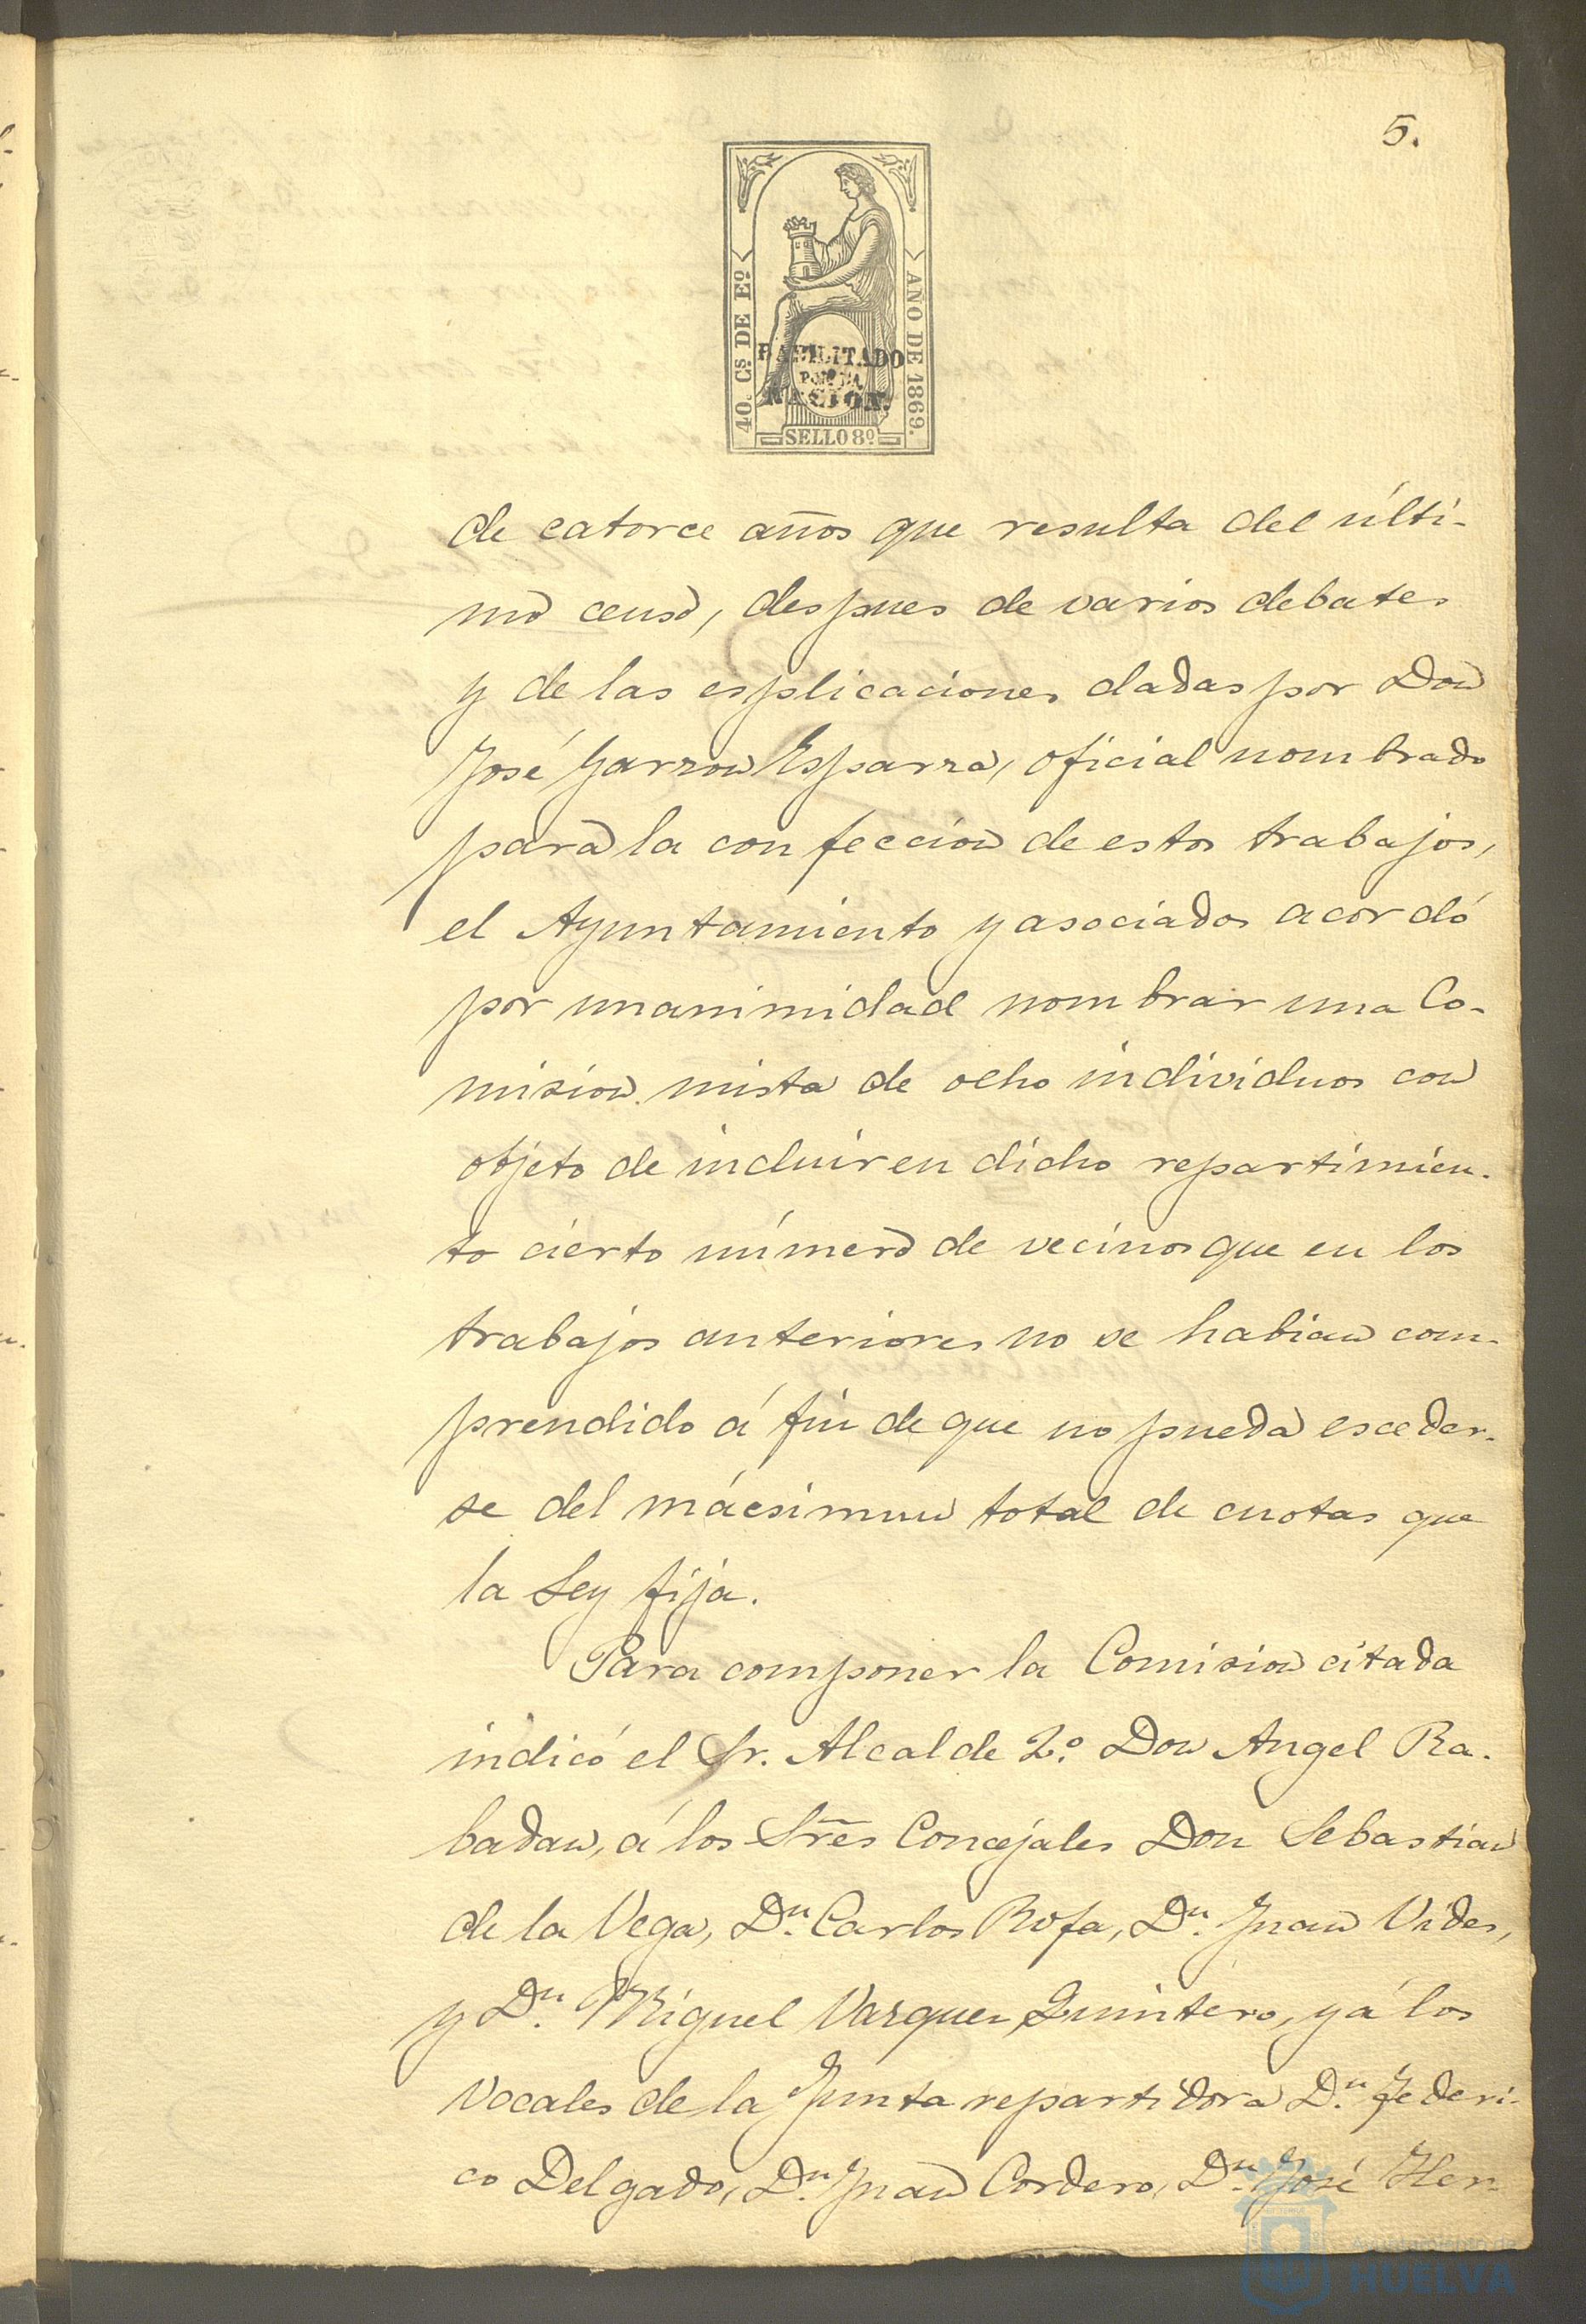 5.
40. Cs DE Eº
AÑO DE 1869.
HABILITADO
POR LA
NACION.
SELLO 8º
de catorce años que resulta del últi-
mo censo, despues de varios debates
y de las esplicaciones dadas por Don
José Garzon Esparza, oficial nombrado
para la confeccion de estos trabajos,
el Ayuntamiento y asociados acordó
por unanimidad nombrar una Co-
mision mista de ocho individuos con
objeto de incluir en dicho repartimien-
to cierto número de vecinos que en los
trabajos anteriores no se habian com-
prendido á fin de que no pueda esceder-
se del mácsimun total de cuotas que
la Ley fija.
Para componer la Comision citada
indicó el Sr. Alcalde 2.º Don Angel Ra-
badan, á los Sres Concejales Don Sebastian
de la Vega, Dn. Carlos Rofa, Dn. Juan Vides,
y Dn. Miguel Vazquez Quintero, y á los
Vocales de la Junta repartidora Dn. Federi-
co Delgado, Dn. Juan Cordero, Dn. José Her
Ayuntamiento
HUELVA